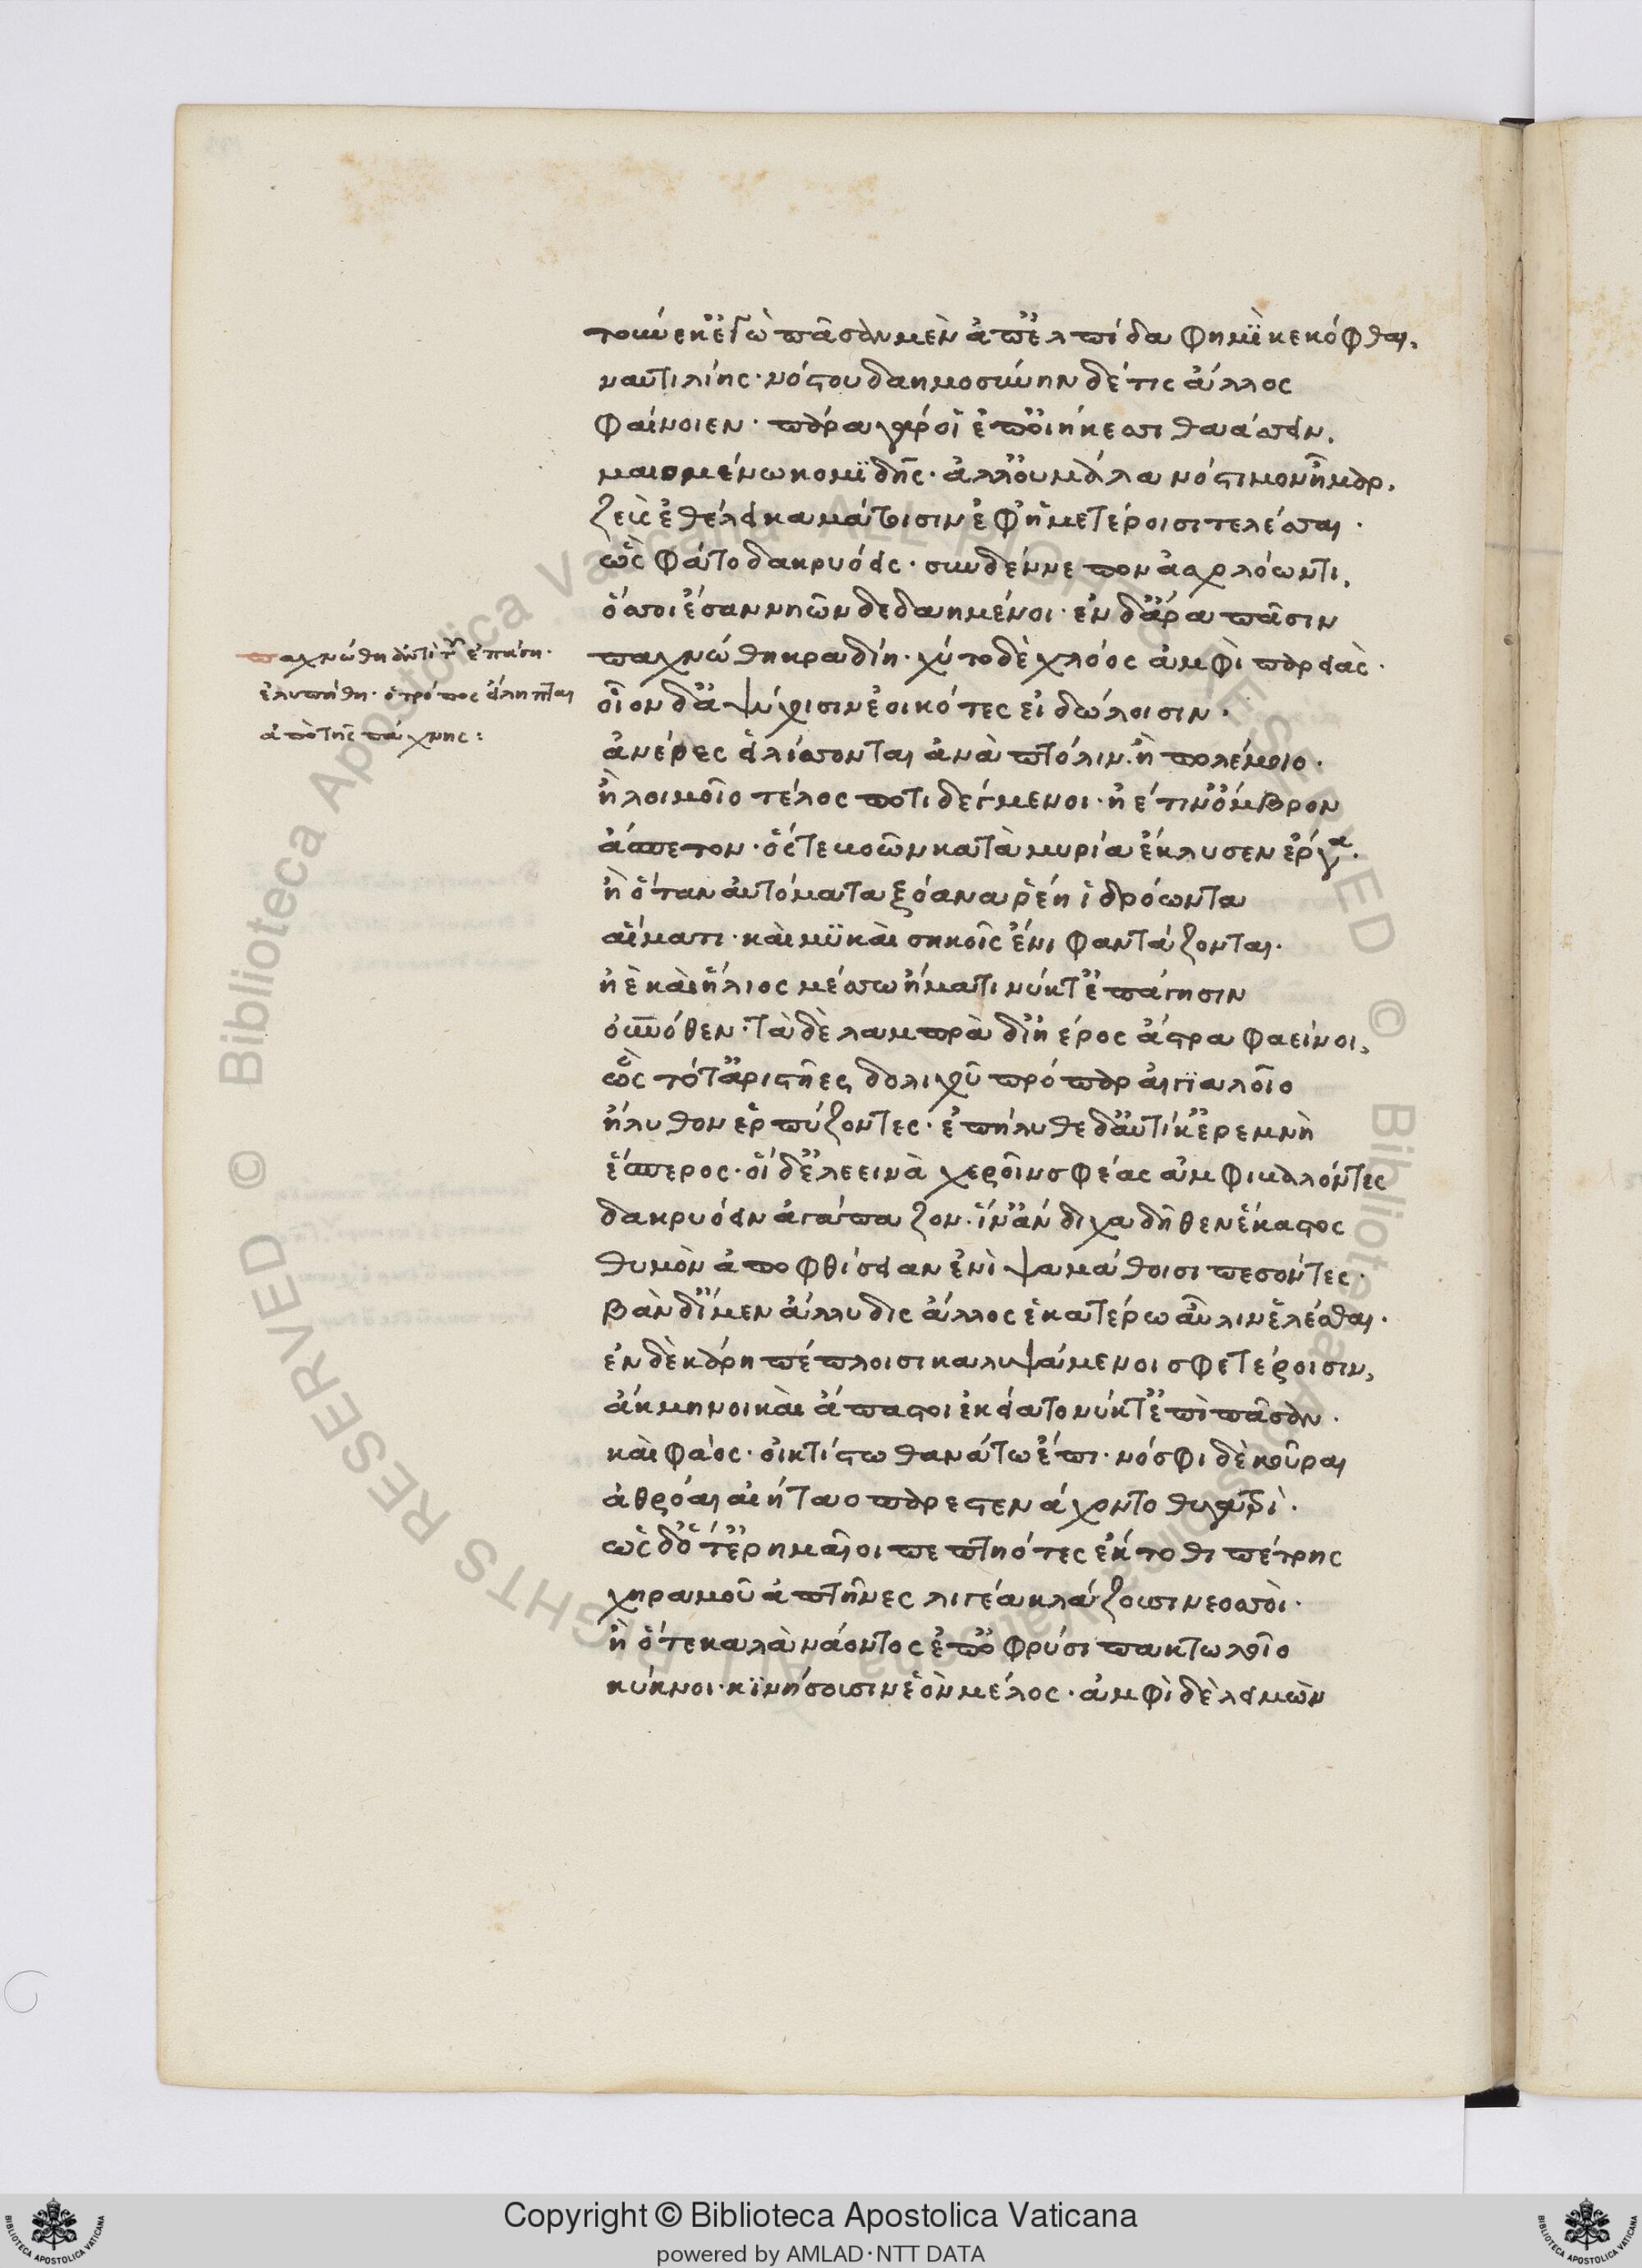 τούνεκ' ἐγὼ πᾶσαν μὲν ἀπ' ἐλπίδα φημὶ κεκόφθαι,
ναυτιλίης· νόστου δαημοσύνην δέ τις ἄλλος
φαίνοιεν· πάρα γάρ οἱ ἐπ' οἰήκεσσι θαάσσειν,
μαιομένω κομιδῆς· ἀλλ' οὐ μάλα νόστιμον ἦμαρ,
ζεὺς ἐθέλει καμάτοισιν ἐφ' ἡμετέροισι τελέσσαι·
ὣς φάτο δακρυόεις· σὺν δ' ἔννεπον ἀσχαλόωντι,
ὅσσοι ἔσαν νηῶν δεδαημένοι· ἐν δ' ἄρα πᾶσιν
παχνώθη κραδίη· χύτο δὲ χλόος ἀμφὶ παρειάς·
οἷον δ' ἀψύχοισιν ἐοικότες εἰδώλοισιν·
ἀνέρες εἱλίσσονται ἀνὰ πτόλιν· ἢ πολέμοιο·
ἢ λοιμοῖο τέλος ποτιδέγμενοι· ἠέ τιν' ὄμβρον
ἄσπετον· ὅς τε βοῶν κατὰ μυρία ἔκλυσεν ἔργα·
ἢ ὅταν αὐτόματα ξόανα ῥέη ἱδρόωντα
αἵματι· καὶ μυκαὶ σηκοῖς ἔνι φαντάζονται·
ἠὲ καὶ ἥλιος μέσσω ἤματι νύκτ' ἐπάγησιν
οὐρανόθεν· τὰ δὲ λαμπρὰ δι' ἠέρος ἄστρα φαείνοι,
ὣς τότ' ἀριστῆες δολιχοῦ πρόπαρ αἰγιαλοῖο
ἤλυθον ἑρπύζοντες· ἐπήλυθε δ' αὐτίκ' ἐρεμνὴ
ἕσπερος· οἱ δ' ἐλεεινὰ χεροῖν σφέας ἀμφιβαλόντες
δακρυόειν ἀγάπαζον· ἵν' ἄνδιχα δῆθεν ἕκαστος
θυμὸν ἀποφθίσειαν ἐνὶ ψαμάθοισι πεσόντες·
βὰν δ' ἴμεν ἄλλυδις ἄλλος ἑκατέρω αὖλιν ἑλέσθαι·
ἐν δὲ κάρη πέπλοισι καλυψάμενοι σφετέροισιν,
ἄκμηνοι καὶ ἄπαστοι ἐκείατο νύκτ' ἐπὶ πᾶσαν·
καὶ φάος· οἰκτίστω θανάτω ἔπι· νόσφι δὲ κοῦραι
ἀθρόαι αἰήταο παρεστενάχοντο θυγατρί·
ὡς δ' ὅτ' ἐρημαῖοι πεπτηότες ἔκτοθι πέτρης
χηραμοῦ ἀπτῆνες λιγέα κλάζουσι νεοσσοί·
ἢ ὅτε καλὰ νάοντος ἐπ' ὀφρύσι πακτωλοῖο
κύκνοι· κινήσουσιν ἑὸν μέλος· ἀμφὶ δὲ λειμὼν
παχνώθη ἀντὶ τοῦ ἐπάγη·
ἐλυπήθη· ὁ τρόπος εἴληπται
ἀπὸ τῆς πάχνης:
Copyright © Biblioteca Apostolica Vaticana
powered by AMLAD·NTT DATA